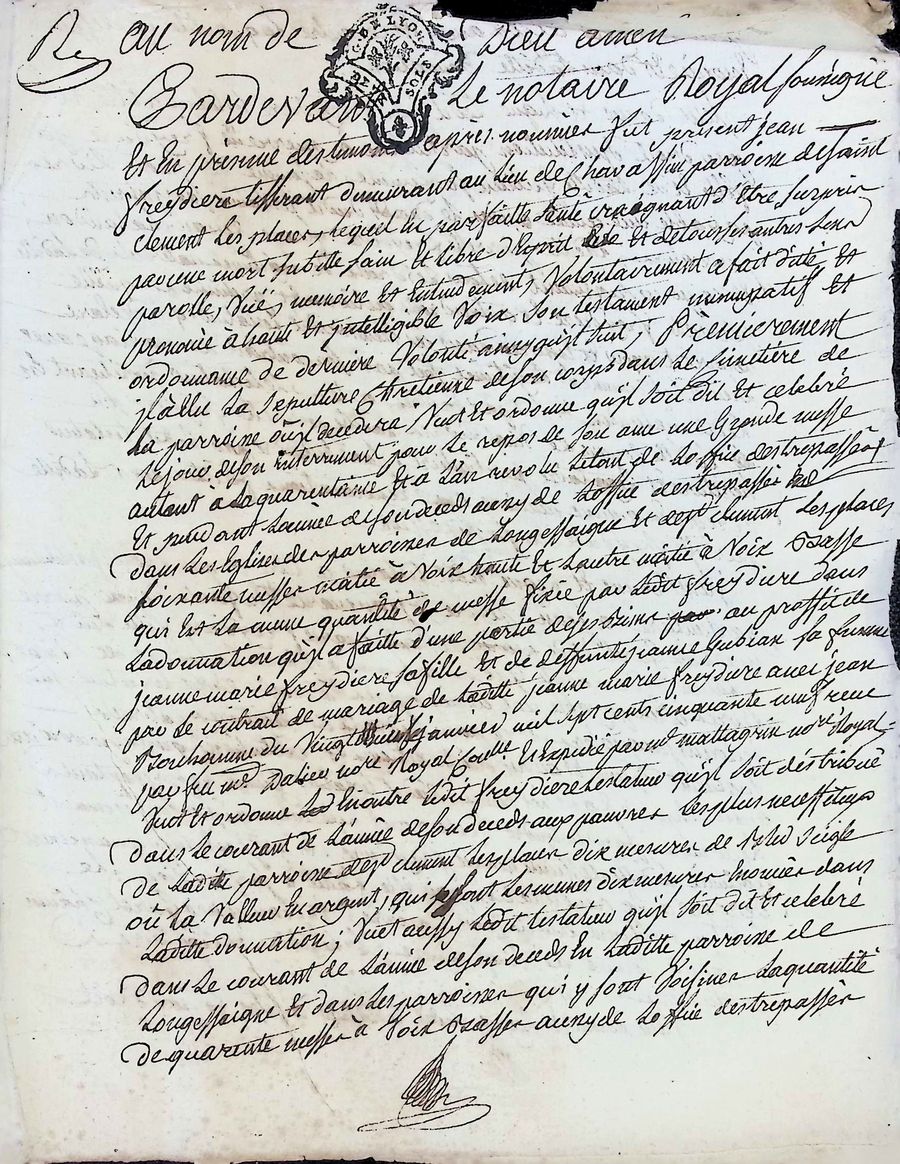 Re au nom de Dieu amen
G. DE LYON DEUX SOLS
Pardevant Le notaire Royal soussigné
Et En présence des temoins après nommés fut present jean
freydiere tisserant demeurant au Lieu de Chavassin parroisse de saint
clement Les places, Lequel En parfaitte santé craignant d'Etre surpris
par une mort subitte sain Et Libre d'Esprit Et de tous ses autres sens
parolle, Vüe, memoire Et Entendement, Volontairement a fait dité Et
prononcé à haute Et jntelligible Voix Son testament nuncupatif Et
ordonnance de derniere Volonté ainsy qu'jl suit, Premierement
jl a Elu La sepulture Chretienne de son corps dans Le Cimetiére de
La parroisse où jl decedera Veut Et ordonne qu'jl soit dit Et celebré
Le jour de son Enterrement pour Le repos de son ame une Grande messe
autant à La quarantaine Et à L'an revolu Le tout de Loffice des trepassés
Et pendant L'année de son deceds aussy de Loffice des trepassés
dans Les Eglises des parroisses de Longessaigne Et de st clement Les places
soixante messes moitié à Voix haute Et L'autre moitié à Voix Basse
qui Est La meme quantité de messe fixée par Ledit freydiere dans
La donnation qu'jl a faitte d'une partie de ses biens au proffit de
jeanne marie freydiere sa fille Et de deffunte jeanne Gubian sa femme
par Le contrait de mariage de Laditte jeanne marie freydiere avec jean
Bonhomme du Vingt janvier mil sept cents cinquante neuf receu
par feu me Dalien nore Royal Et Expedié par me mattagrin nore Royal
Veut Et ordonne En outre Ledit freydiere testateur qu'jl soit distribué
dans Le courant de L'année de son deceds aux pauvres Les plus necessiteux
de Laditte parroisse de st clement Les places dix mesures de Bled seigle
où La Valleur En argent, qui sont Les memes dix mesures Enoncées dans
Laditte donnation; Veut aussy Ledit testateur qu'jl soit dit Et celebré
dans Le courant de L'année de son deceds En Laditte parroisse de
Longessaigne Et dans Les parroisses qui y sont Voisines La quantité
de quarante messes à Voix Basses aussy de Loffice des trepassés